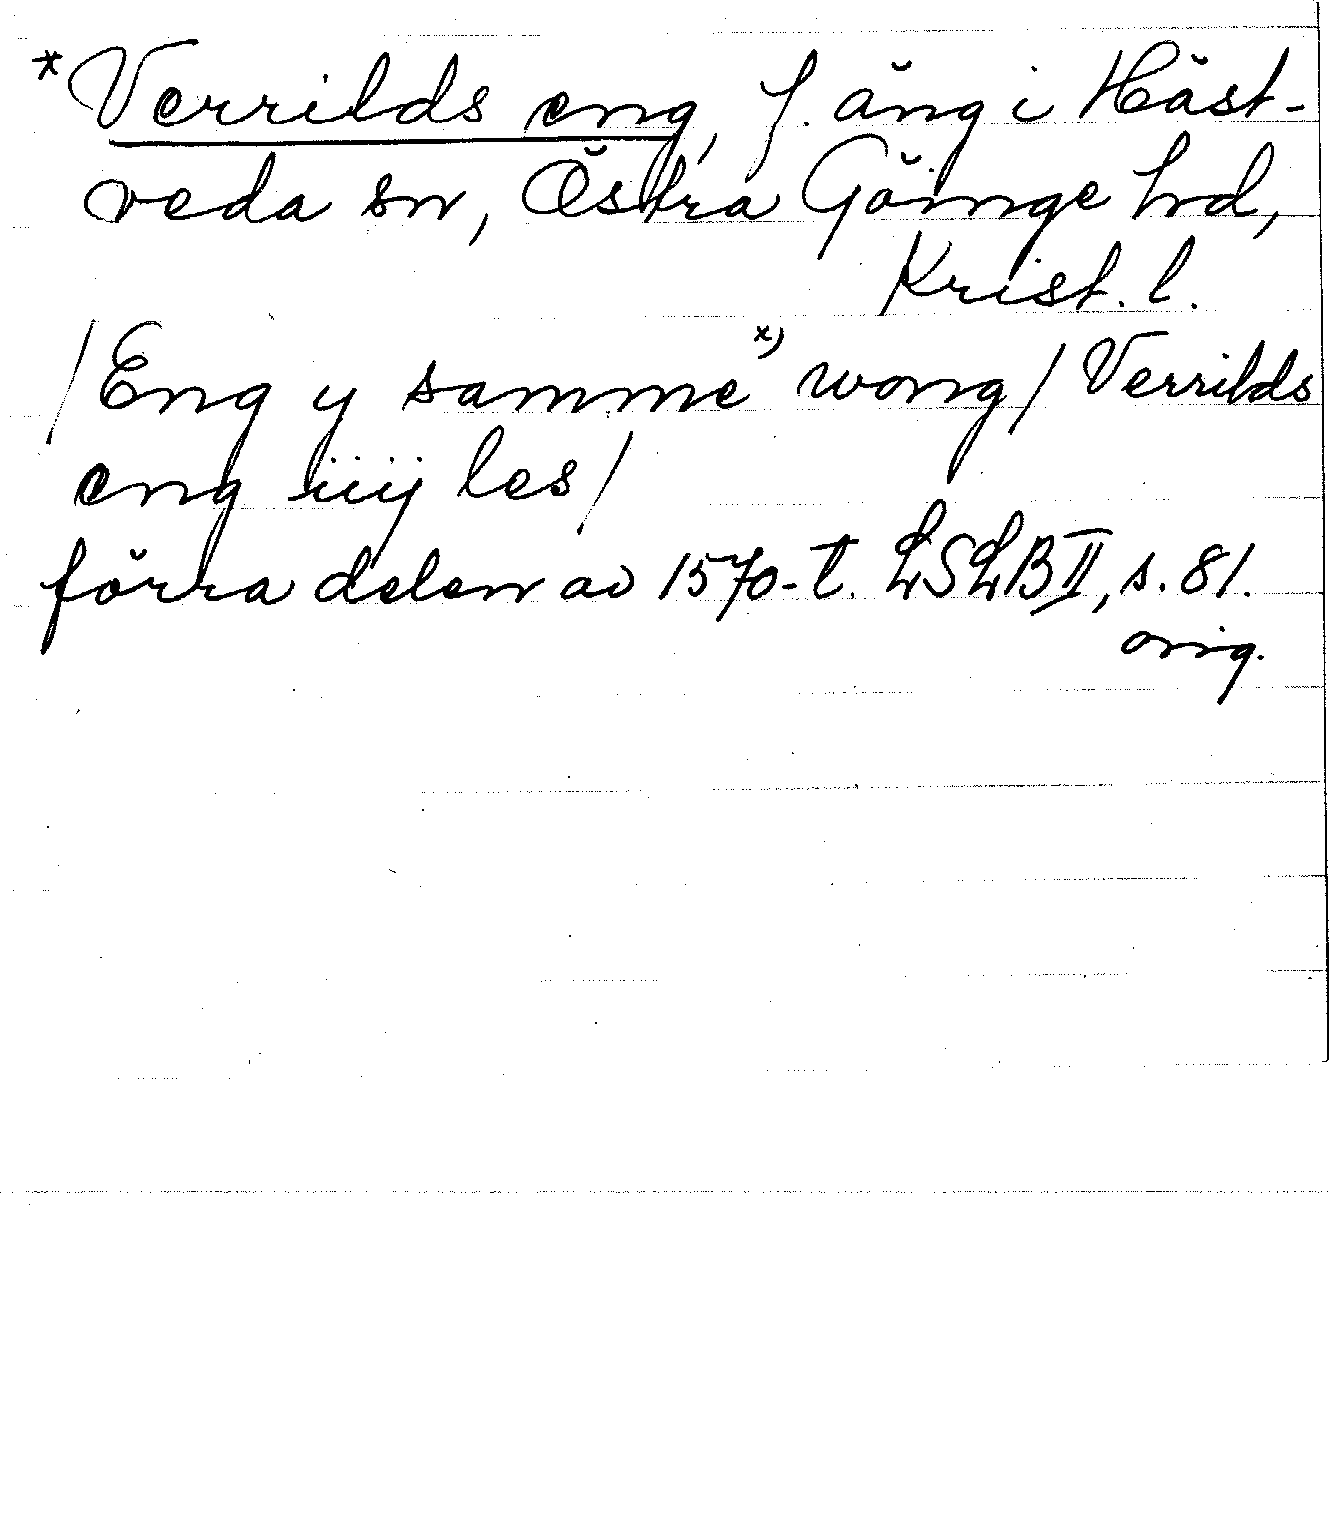 *Verrilds eng, f. äng i Häst-
veda sn, Östra Göinge hd,
Krist. l.
/Eng y samme x) wong/ Verrilds
eng iiij les/
förra delen av 1570-t. LSLB II, s. 81.
orig.